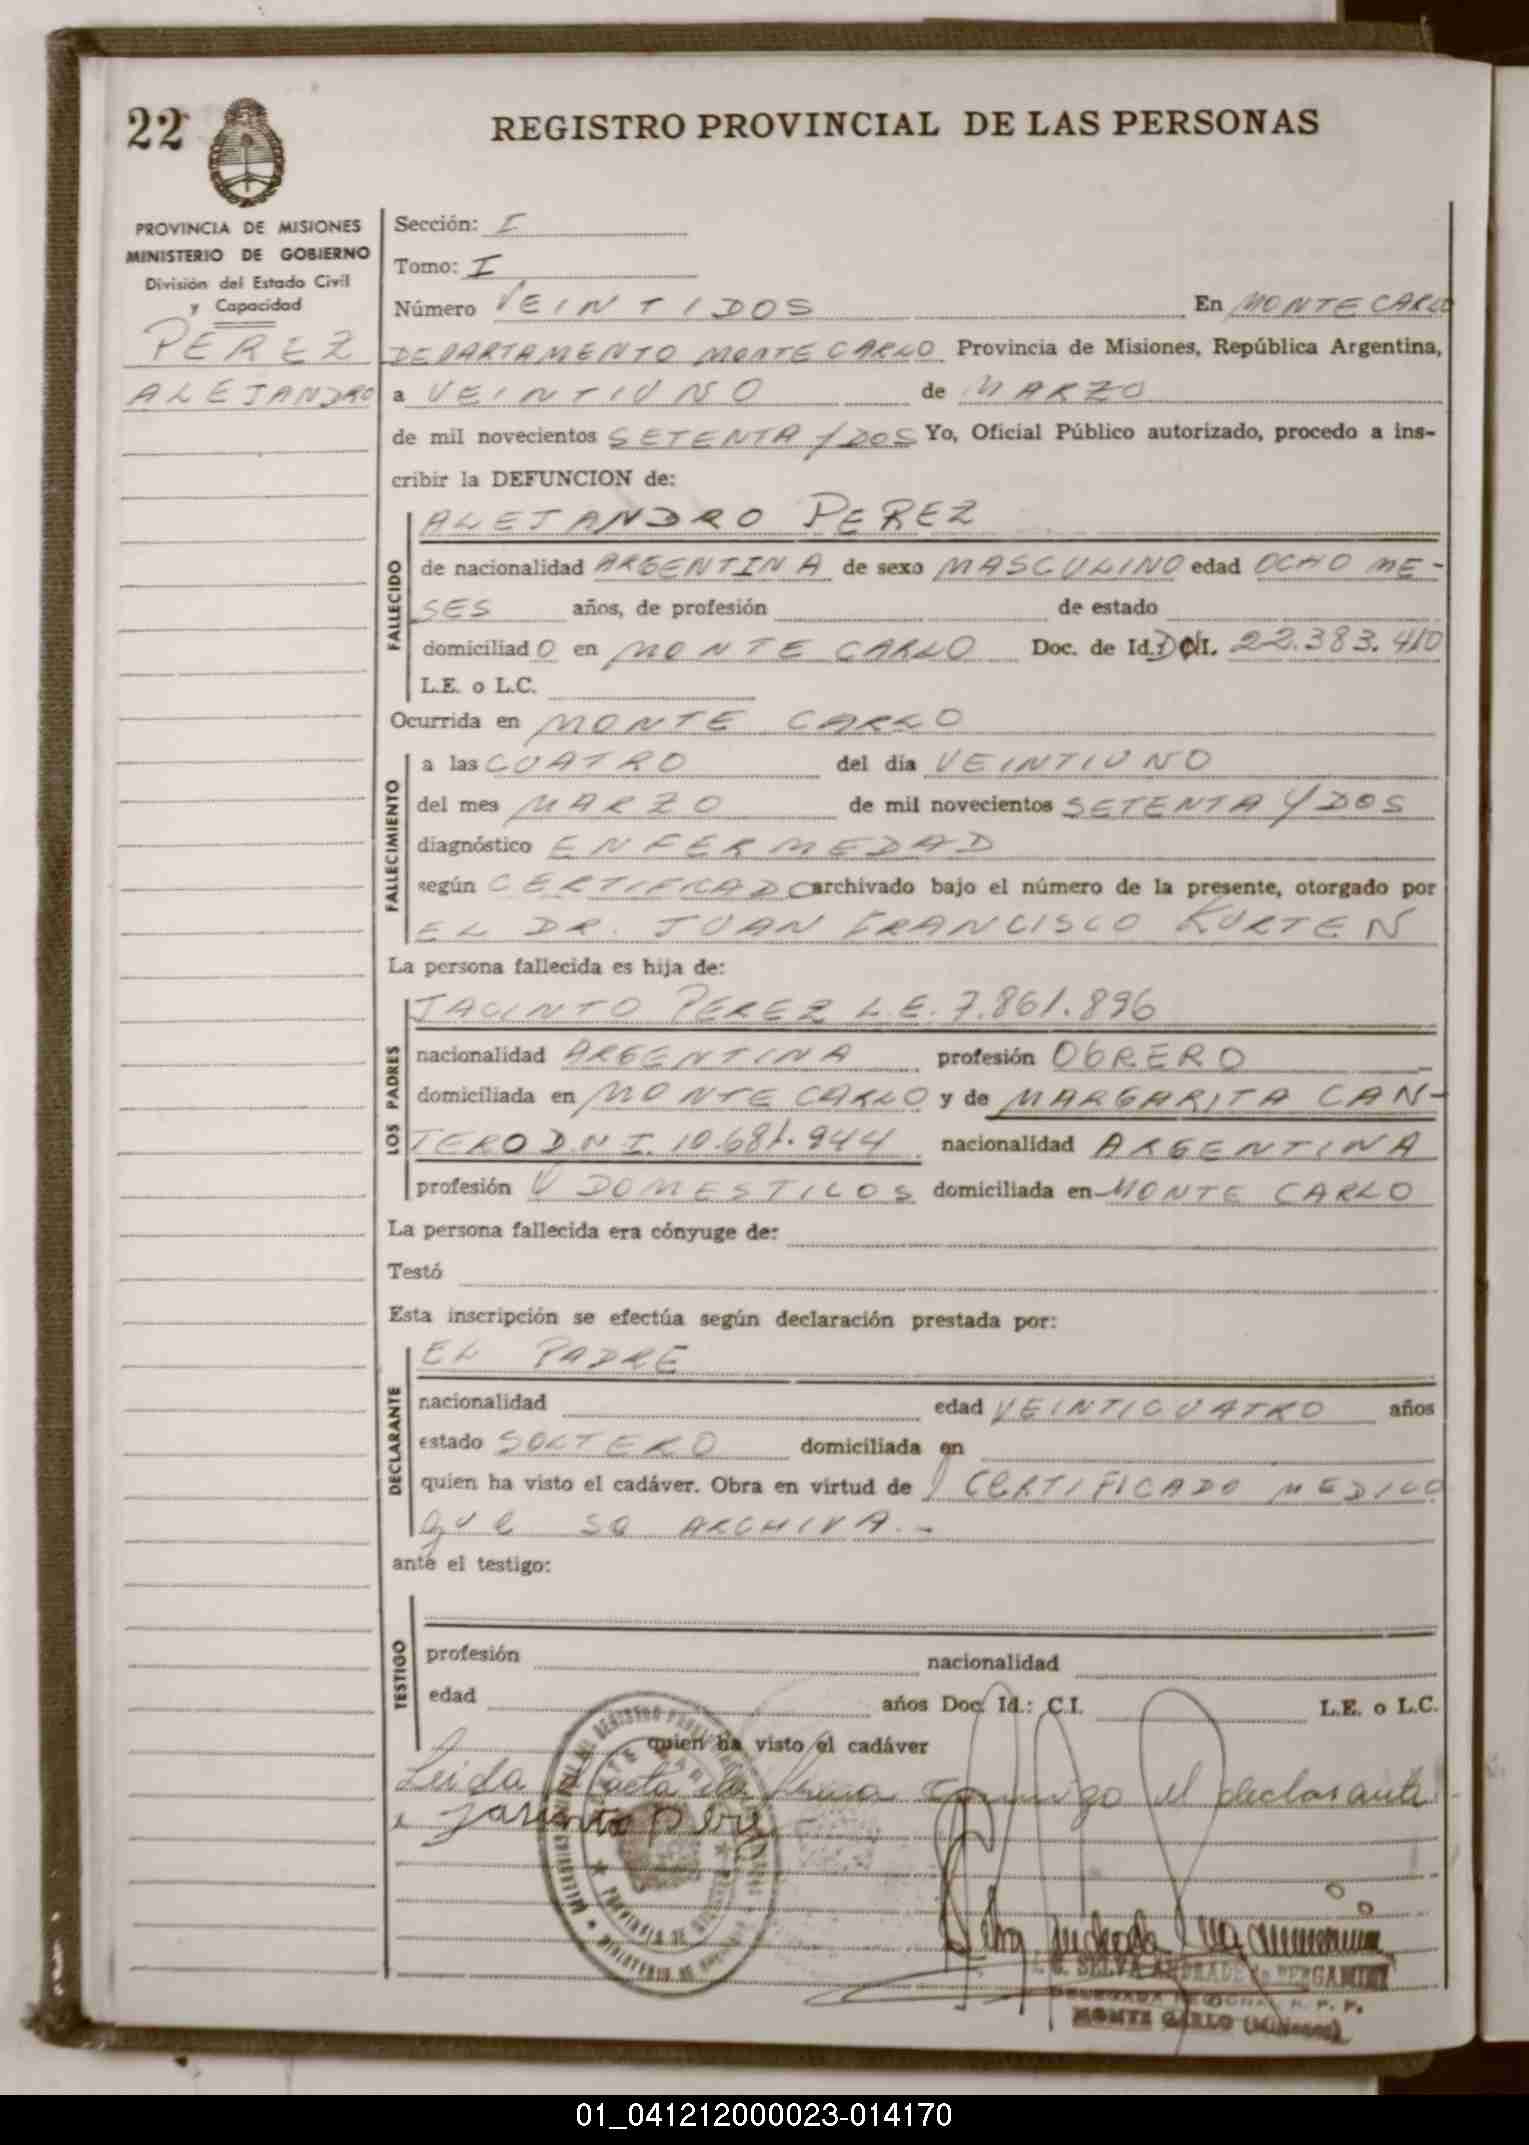 22
REGISTRO PROVINCIAL DE LAS PERSONAS
PROVINCIA DE MISIONES
MINISTERIO DE GOBIERNO
División del Estado Civil
y Capacidad
PEREZ
ALEJANDRO
Sección: I
Tomo: I
Número VEINTIDOS En MONTE CARLO
DEPARTAMENTO MONTE CARLO Provincia de Misiones, República Argentina,
a VEINTIUNO de MARZO
de mil novecientos SETENTA Y DOS Yo, Oficial Público autorizado, procedo a ins-
cribir la DEFUNCION de:
FALLECIDO
ALEJANDRO PEREZ
de nacionalidad ARGENTINA de sexo MASCULINO edad OCHO ME-
SES años, de profesión de estado
domiciliado en MONTE CARLO Doc. de Id. 22.383.410
L.E. o L.C.
Ocurrida en MONTE CARLO
FALLECIMIENTO
a las CUATRO del día VEINTIUNO
del mes MARZO de mil novecientos SETENTA Y DOS
diagnóstico ENFERMEDAD
según CERTIFICADO archivado bajo el número de la presente, otorgado por
EL DR. JUAN FRANCISCO KURTEN
La persona fallecida es hija de:
LOS PADRES
JACINTO PEREZ L.E. 7.861.896
nacionalidad ARGENTINA profesión OBRERO
domiciliada en MONTE CARLO y de MARGARITA CAN-
TERO D.N.I. 10.681.944 nacionalidad ARGENTINA
profesión DOMESTICOS domiciliada en MONTE CARLO
La persona fallecida era cónyuge de:
Testó
Esta inscripción se efectúa según declaración prestada por:
DECLARANTE
EL PADRE
nacionalidad edad VEINTICUATRO años
estado SOLTERO domiciliada en
quien ha visto el cadáver. Obra en virtud de CERTIFICADO MEDICO
que se ARCHIVA.-
ante el testigo:
TESTIGO
profesión nacionalidad
edad años Doc. Id.: C.I. L.E. o L.C.
quien ha visto el cadáver
Leida el acta la firma conmigo el declarante
Jasinto perez
SELVA ANDRADE de BERGAMINI
MONTE CARLO (Misiones)
01_041212000023-014170